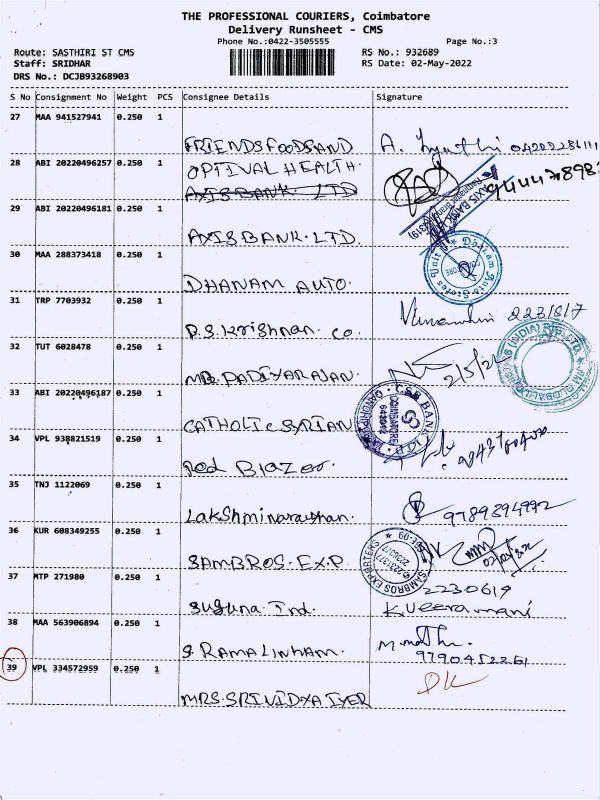 THE PROFESSIONAL COURIERS, Coimbatore
Delivery Runsheet - CMS
Phone No.:0422-3505555 Page No.:3
Route: SASTHIRI ST CMS RS No.: 932689
Staff: SRIDHAR RS Date: 02-May-2022
DRS No.: DCJB93268903
S No Consignment No Weight PCS Consignee Details Signature
27 MAA 941527941 0.250 1
FRIENDSFOODSAND
28 ABI 20220496257 0.250 1 OPTIVAL HEALTH.
AXIS BANK LTD
29 ABI 20220496181 0.250 1
AXIS BANK. LTD.
30 MAA 288373418 0.250 1
DHANAM AUTO.
31 TRP 7703932 0.250 1
P.S.Krishnan. Co.
32 TUT 6028478 0.250 1
2/5/22
33 ABI 20220496187 0.250 1
CATHOLIC SYRIAN
34 VPL 938821519 0.250 1
Red Blazer.
35 TNJ 1122069 0.250 1
9789394992
36 KUR 608349255 0.250 1
SAMBROS. EXP
37 MTP 271980 0.250 1 2230619
Suguna Ind. K.Veeramani
38 MAA 563906894 0.250 1
S. RAMALINHAM. 9790452261
39 VPL 334572959 0.250 1 OK
MRS. SRIVIDYA IYER